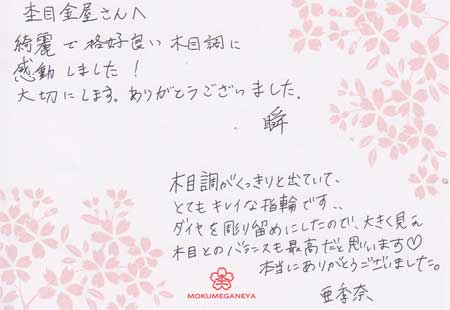 杢目金屋さんへ
綺麗で格好良い木目調に
感動しました!
大切にします。ありがとうございました。
瞬
木目調がくっきりと出ていて、
とてもキレイな指輪です、、
ダイヤを彫り留めにしたので、大きく見え
木目とのバランスも最高だと思います♡
本当にありがとうございました。
亜季奈
MOKUMEGANEYA